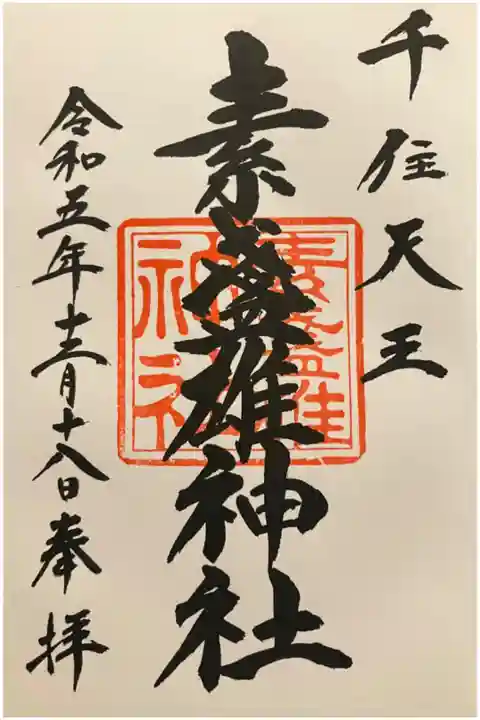 千住天王
素盞雄神社
令和五年十二月十八日奉拝